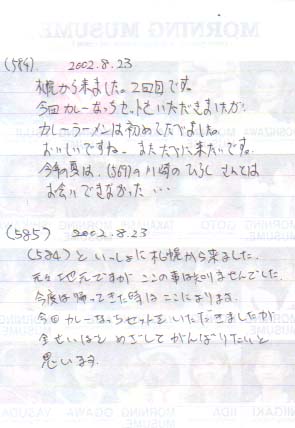 (584) 2002.8.23
札幌から来ました。2回目です。
今回カレーなっちセットをいただきましたが、
カレーラーメンは初めてたべました。
おいしいですね。またたべに来たいです。
今年の夏は、(569)の川崎のひろしさんには
お会いできなかった・・・
(585) 2002.8.23
(584)といっしょに札幌から来ました。
元々地元ですがここの事は知りませんでした。
今度は帰ってきた時はここによります。
今回カレーなっちセットをいただきましたが
全せいはを めざしてがんばりたいと
思います。
MORNING MUSUME